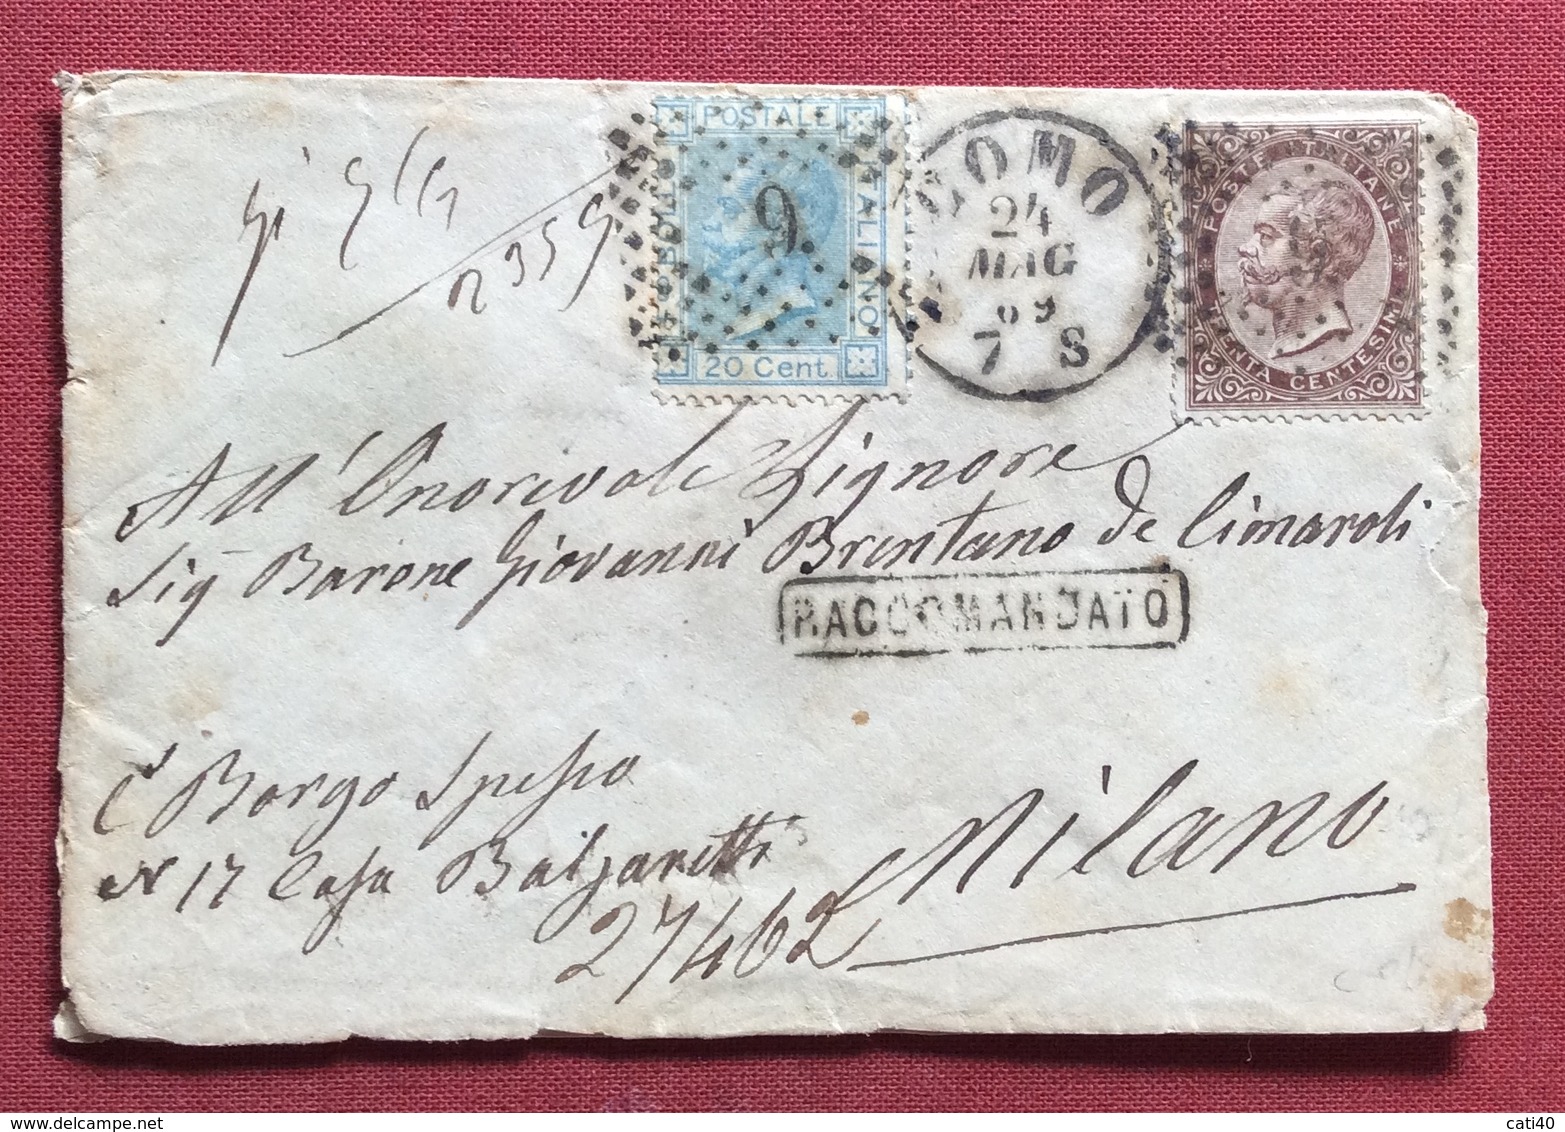 n 359
BOLLO POSTALE ITALIANO
20 Cent.
9
COMO
24
MAG
69
7 S
POSTE ITALIANE
TRENTA CENTESIMI
9
All' Onorevole Signore
Sig Barone Giovanni Brentano de Cimaroli
RACCOMANDATO
Borgo Spesso
N 17 Casa Balzaretti
Milano
27462
cati40